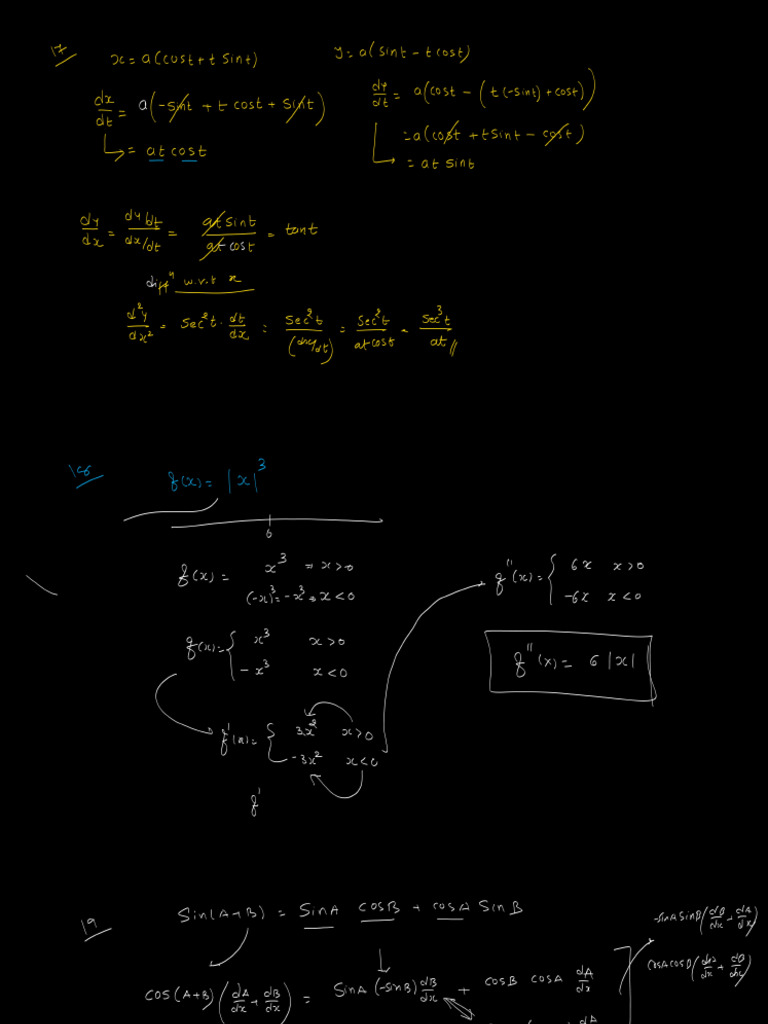 17
x = a(cost + t sint)
y = a(sint - t cost)
dx/dt = a(-sint + t cost + sint)
= at cost
dy/dt = a(cost - (t(-sint) + cost))
= a(cost + tsint - cost)
= at sint
dy/dx = dy/dt / dx/dt = at sint / at cost = tant
diffⁿ w.r.t x
d²y/dx² = sec²t · dt/dx = sec²t / (dx/dt) = sec²t / at cost = sec³t / at
18
f(x) = |x|³
0
f(x) = x³ = x>0
(-x)³ = -x³ = x<0
f(x) = { x³ x>0
- x³ x<0
f'(x) = { 3x² x>0
-3x² x<0
f'
f''(x) = { 6x x>0
-6x x<0
f''(x) = 6|x|
19
Sin(A+B) = SinA cosB + cosA SinB
cos(A+B) (dA/dx + dB/dx) = SinA (-sinB) dB/dx + cosB cosA dA/dx
-sinA sinB (dB/dx + dA/dx)
cosA cosB (dA/dx + dB/dx)
dA